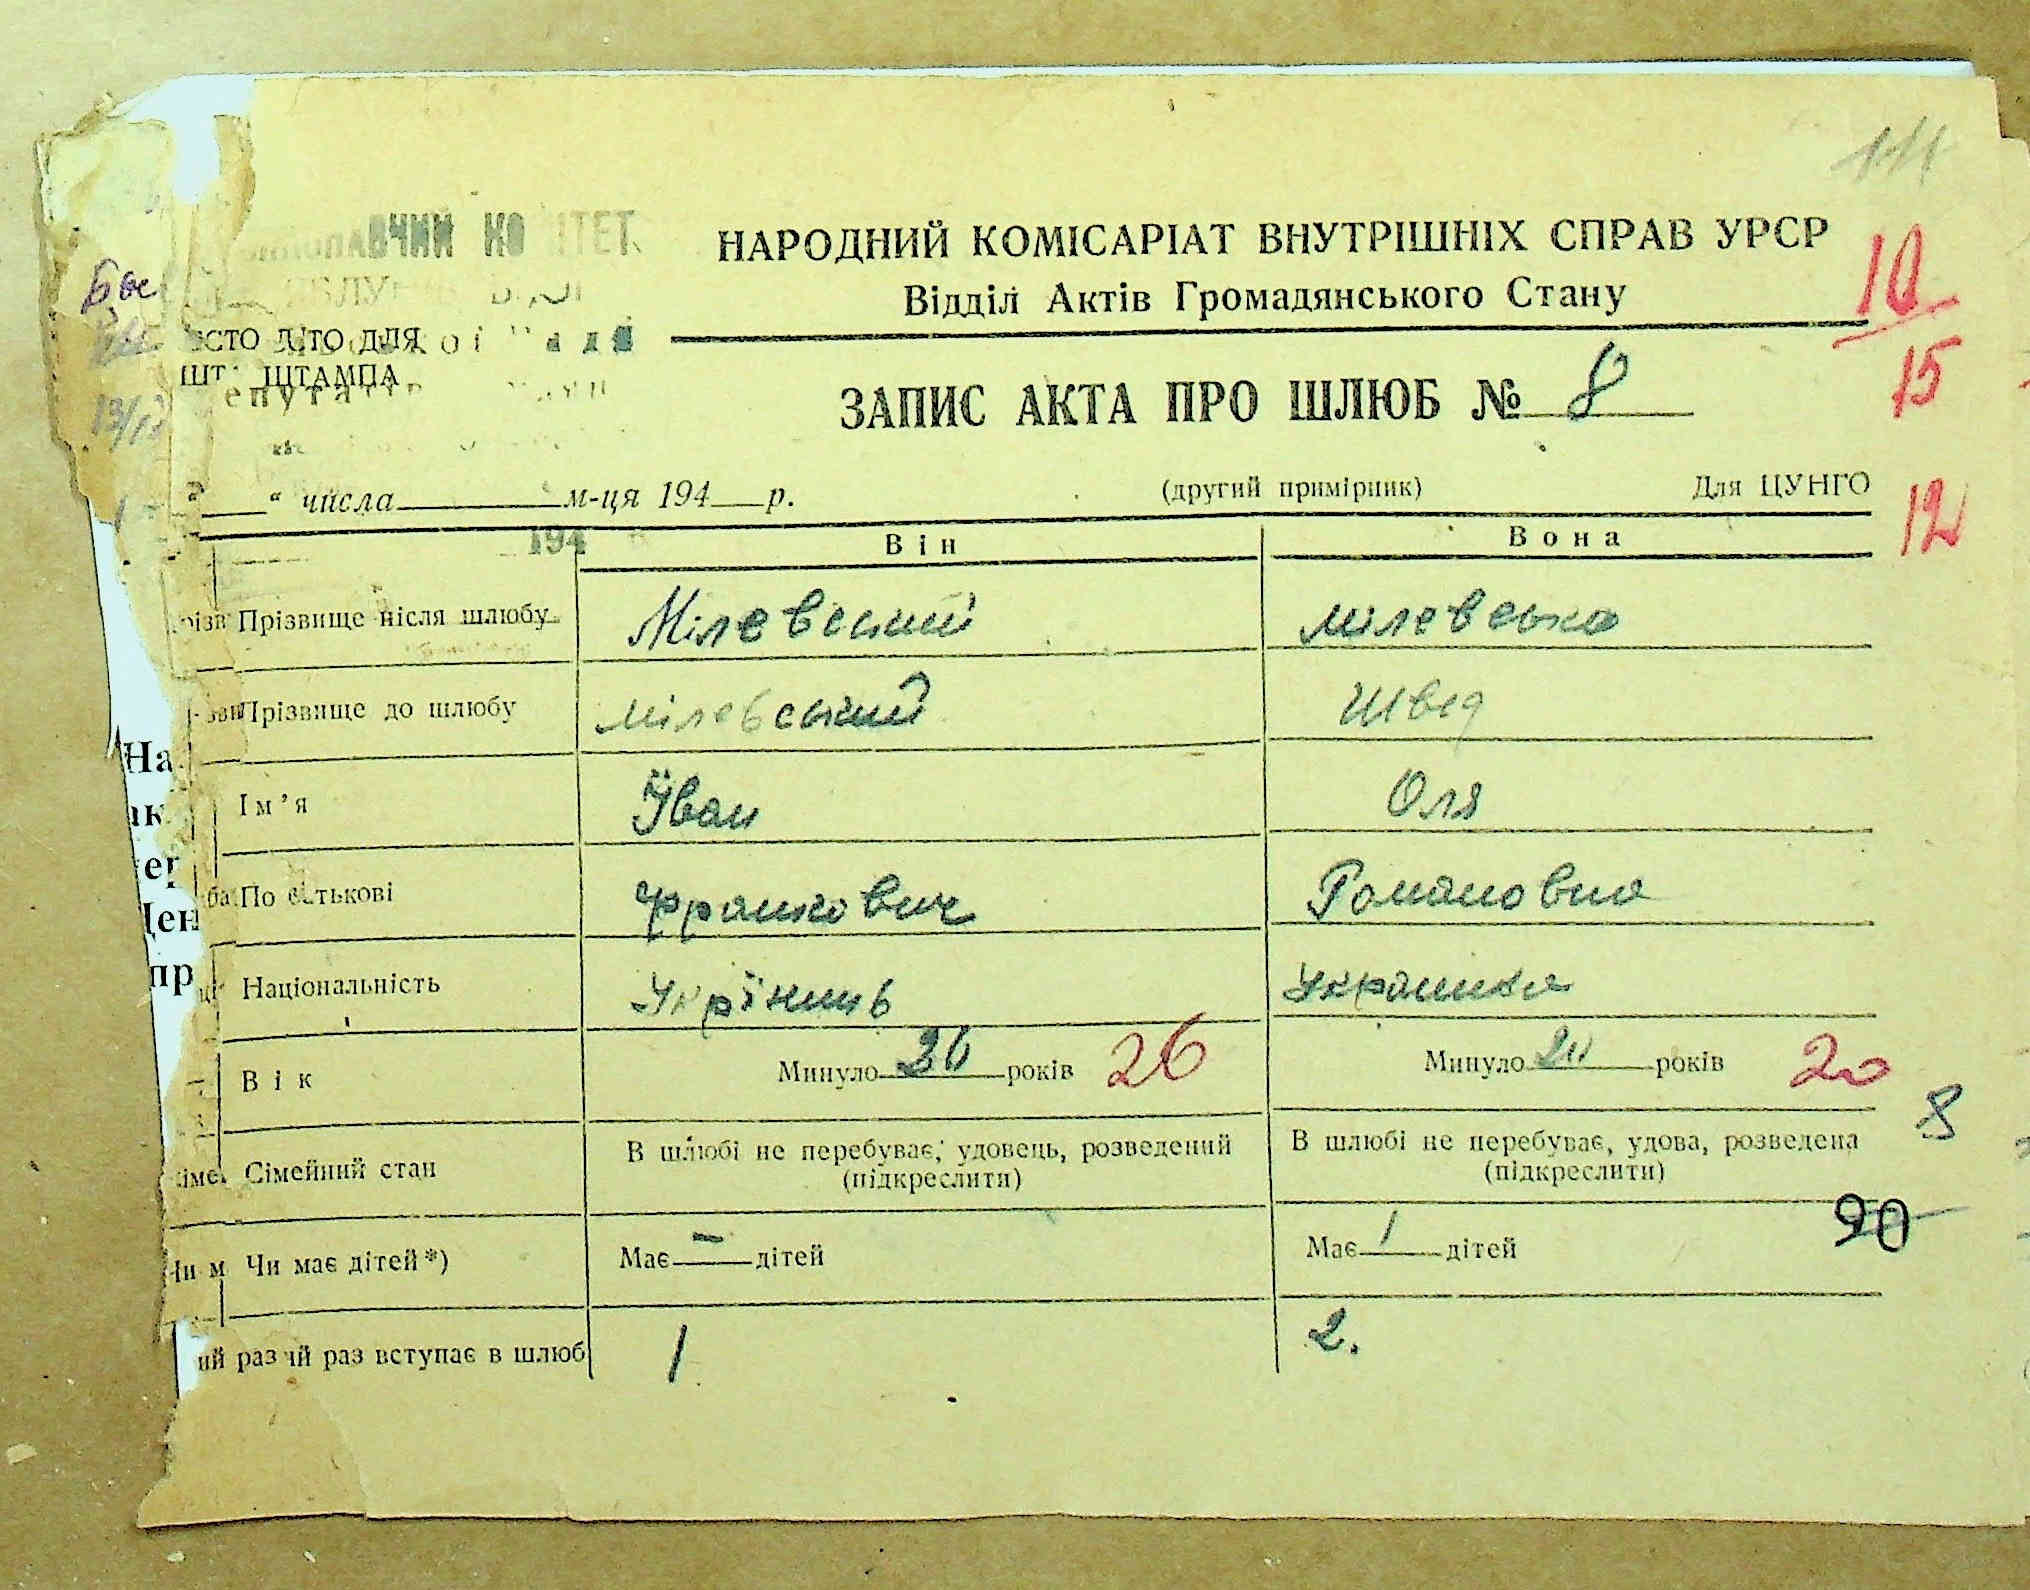 НАРОДНИЙ КОМІСАРІАТ ВНУТРІШНІХ СПРАВ УРСР
Відділ Актів Громадянського Стану
ШТАМПА
ЗАПИС АКТА ПРО ШЛЮБ № 8
10
15
12
“ числа м-ця 194 р.
(другий примірник) Для ЦУНГО
194
Він Вона
Прізвище після шлюбу Мілевський Мілевська
Прізвище до шлюбу Мілевський Швед
Ім’я Йван Оля
По батькові Франкович Романовна
Національність Укрїнинь Украинка
Вік Минуло 26 років 26 Минуло 20 років 20
8
Сімейний стан В шлюбі не перебуває, удовець, розведений (підкреслити) В шлюбі не перебуває, удова, розведена (підкреслити)
90
Чи має дітей*) Має — дітей Має 1 дітей
ий раз вступає в шлюб 1 2.